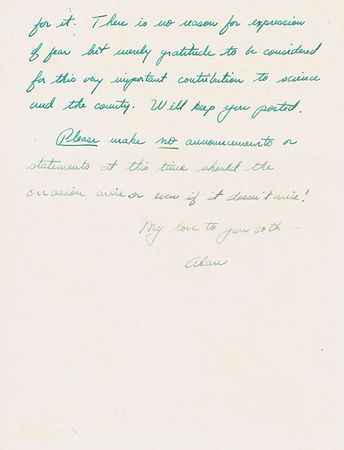 for it. There is no reason for expression
of fear but merely gratitude to be considered
for this very important contribution to science
and the country. Will keep you posted.
Please make no announcements or
statements at this time should the
occasion arise or even if it doesn't arise!
My love to you both —
Alan